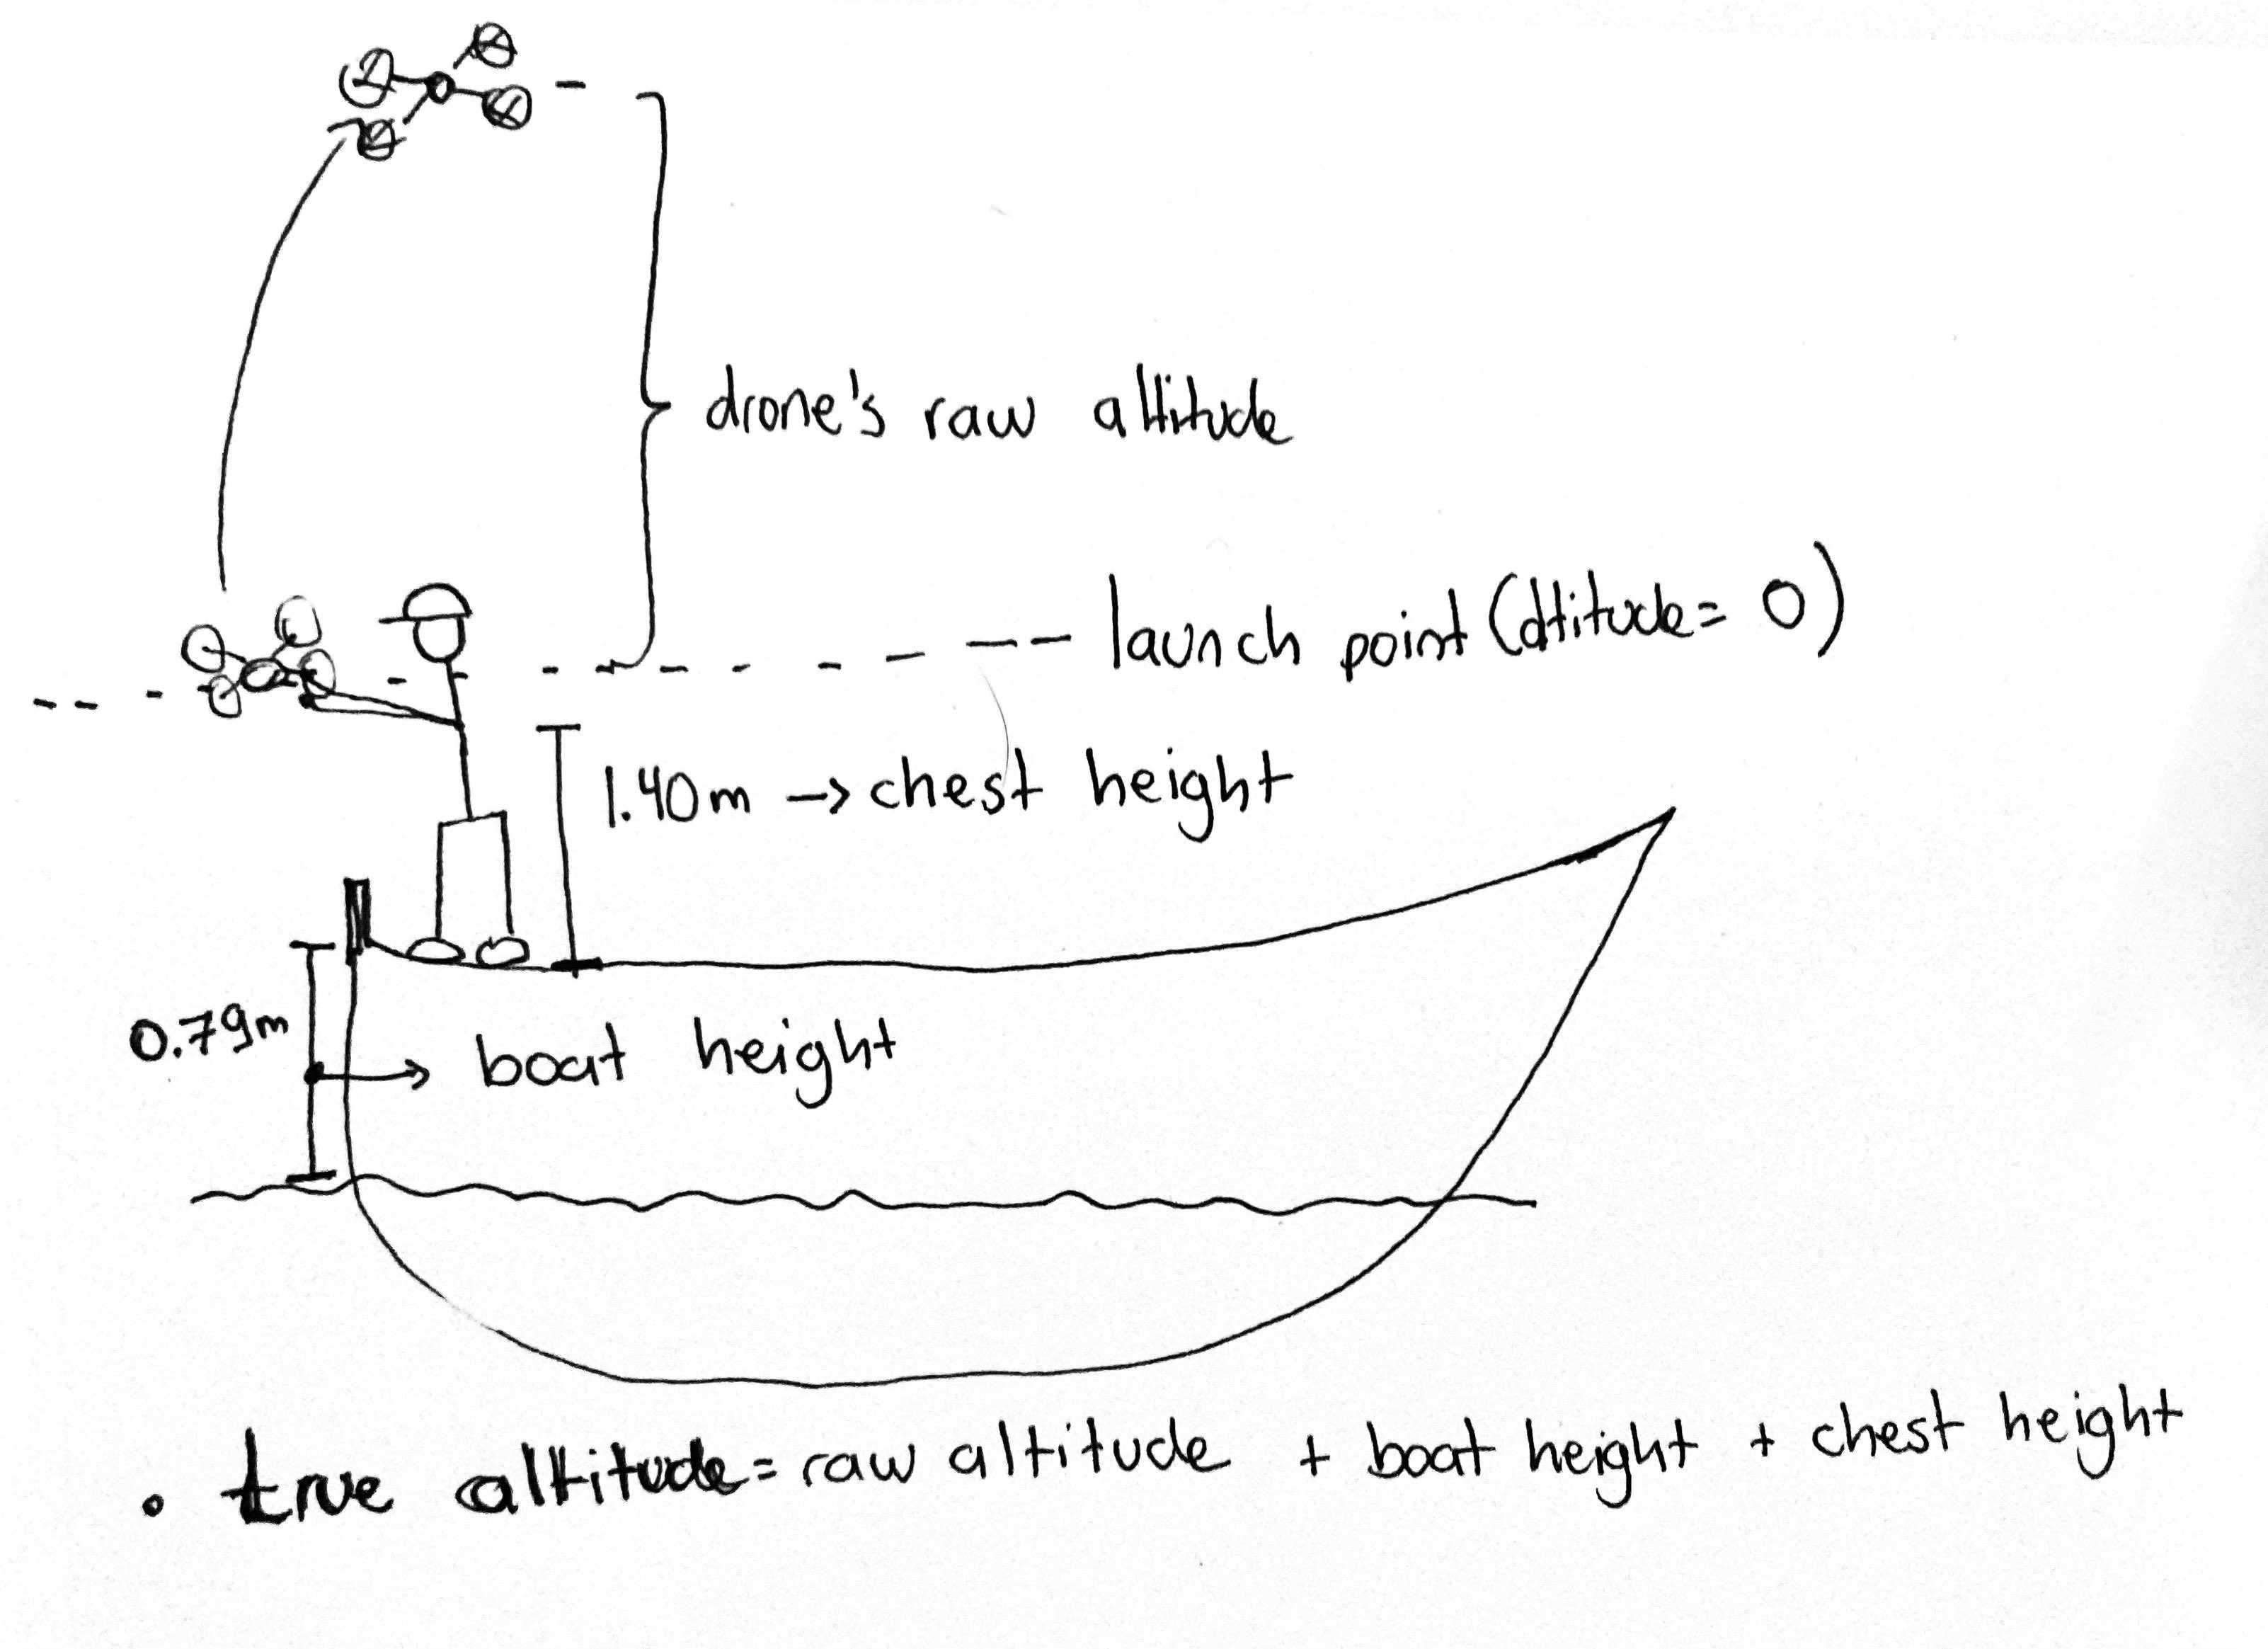 drone's raw altitude
launch point (altitude= 0)
1.40m -> chest height
0.79m
boat height
• true altitude= raw altitude + boat height + chest height